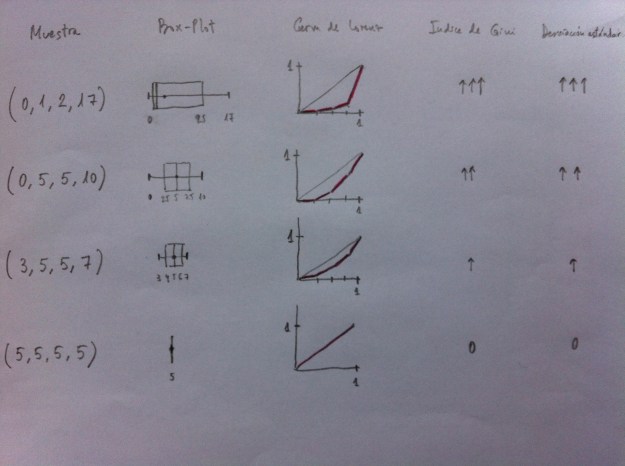 Muestra Box-Plot Curva de Lorenz Indice de Gini Desviación estándar
(0, 1, 2, 17) 0 9.5 17 1 1 ↑↑↑ ↑↑↑
(0, 5, 5, 10) 0 2.5 5 2.5 10 1 1 ↑↑ ↑↑
(3, 5, 5, 7) 3 4 5 6 7 1 1 ↑ ↑
(5, 5, 5, 5) 5 1 1 0 0